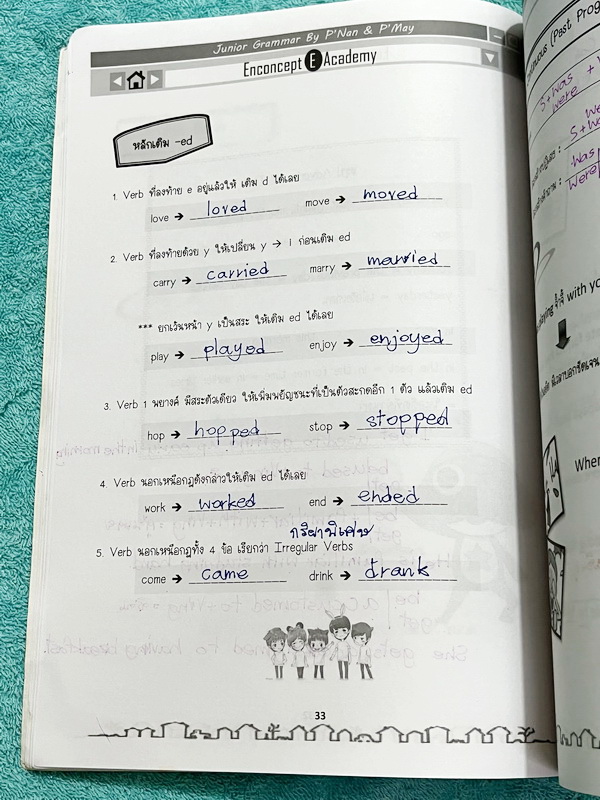 Junior Grammar By P'Nan & P'May
Enconcept E Academy
หลักเติม -ed
1. Verb ที่ลงท้าย e อยู่แล้วให้ เติม d ได้เลย
love → loved move → moved
2. Verb ที่ลงท้ายด้วย y ให้เปลี่ยน y → I ก่อนเติม ed
carry → carried marry → married
*** ยกเว้นหน้า y เป็นสระ ให้เติม ed ได้เลย
play → played enjoy → enjoyed
3. Verb 1 พยางค์ มีสระตัวเดียว ให้เพิ่มพยัญชนะที่เป็นตัวสะกดอีก 1 ตัว แล้วเติม ed
hop → hopped stop → stopped
4. Verb นอกเหนือกฎดังกล่าวให้เติม ed ได้เลย
work → worked end → ended
กริยาพิเศษ
5. Verb นอกเหนือกฎทั้ง 4 ข้อ เรียกว่า Irregular Verbs
come → came drink → drank
33
(Past Prog
S+was
were
was
were
with yo
When